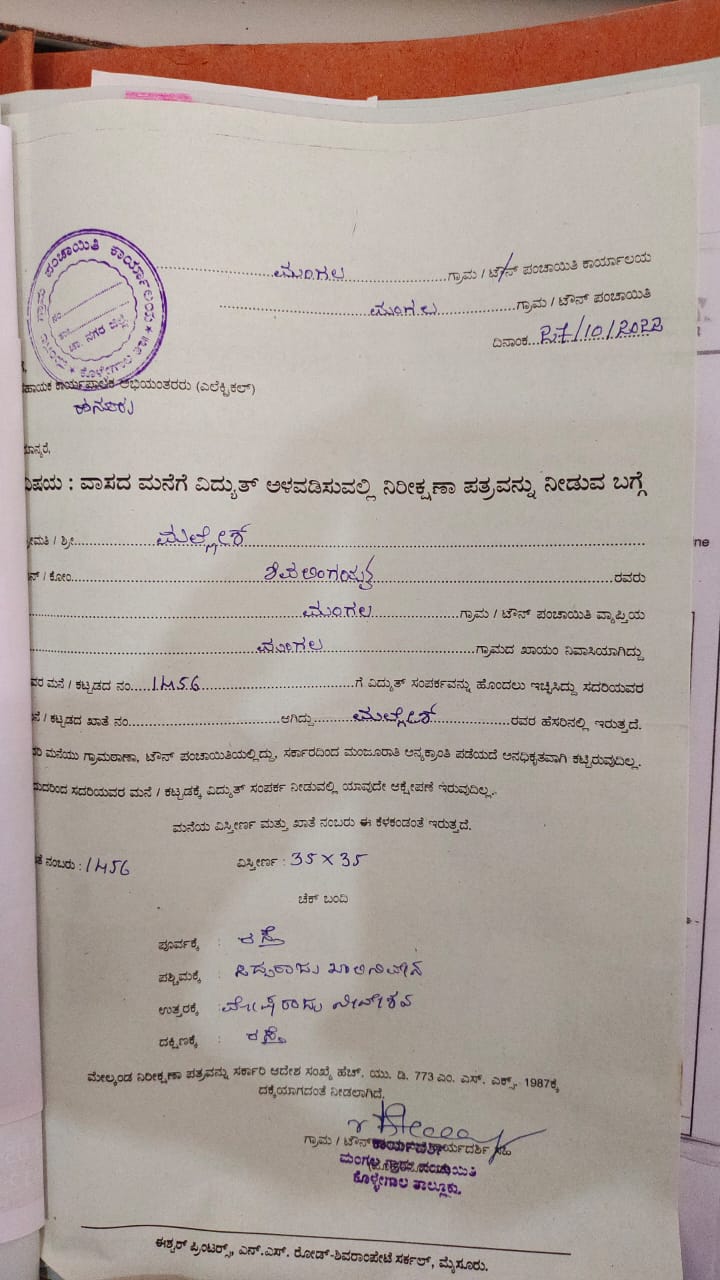 ಗ್ರಾಮ ಪಂಚಾಯಿತಿ ಕಾರ್ಯಾಲಯ
ಚಾ. ನಗರ ಜಿಲ್ಲೆ
ಕೊಳ್ಳೇಗಾಲ ತಾ||
ಮಂಗಲ ಗ್ರಾಮ / ಟೌನ್ ಪಂಚಾಯಿತಿ ಕಾರ್ಯಾಲಯ
ಮಂಗಲ ಗ್ರಾಮ / ಟೌನ್ ಪಂಚಾಯಿತಿ
ದಿನಾಂಕ 27/10/2022
ಹಾಯಕ ಕಾರ್ಯಪಾಲಕ ಅಭಿಯಂತರರು (ಎಲೆಕ್ಟ್ರಿಕಲ್)
ಹನೂರು
ಮಾನ್ಯರೆ,
ವಿಷಯ : ವಾಸದ ಮನೆಗೆ ವಿದ್ಯುತ್ ಅಳವಡಿಸುವಲ್ಲಿ ನಿರೀಕ್ಷಣಾ ಪತ್ರವನ್ನು ನೀಡುವ ಬಗ್ಗೆ
ೀಮತಿ / ಶ್ರೀ ಮಲ್ಲೇಶ್
ನ್ / ಕೋಂ ರವರು
ಮಂಗಲ ಗ್ರಾಮ / ಟೌನ್ ಪಂಚಾಯಿತಿ ವ್ಯಾಪ್ತಿಯ
ಮಂಗಲ ಗ್ರಾಮದ ಖಾಯಂ ನಿವಾಸಿಯಾಗಿದ್ದು
ವರ ಮನೆ / ಕಟ್ಟಡದ ನಂ. 1456 ಗೆ ವಿದ್ಯುತ್ ಸಂಪರ್ಕವನ್ನು ಹೊಂದಲು ಇಚ್ಛಿಸಿದ್ದು ಸದರಿಯವರ
ನೆ / ಕಟ್ಟಡದ ಖಾತೆ ನಂ. ಆಗಿದ್ದು ಮಲ್ಲೇಶ್ ರವರ ಹೆಸರಿನಲ್ಲಿ ಇರುತ್ತದೆ.
ರಿ ಮನೆಯು ಗ್ರಾಮಠಾಣಾ, ಟೌನ್ ಪಂಚಾಯಿತಿಯಲ್ಲಿದ್ದು, ಸರ್ಕಾರದಿಂದ ಮಂಜೂರಾತಿ ಅನ್ಯಕ್ರಾಂತಿ ಪಡೆಯದೆ ಅನಧಿಕೃತವಾಗಿ ಕಟ್ಟಿರುವುದಿಲ್ಲ.
ದುದರಿಂದ ಸದರಿಯವರ ಮನೆ / ಕಟ್ಟಡಕ್ಕೆ ವಿದ್ಯುತ್ ಸಂಪರ್ಕ ನೀಡುವಲ್ಲಿ ಯಾವುದೇ ಆಕ್ಷೇಪಣೆ ಇರುವುದಿಲ್ಲ.
ಮನೆಯ ವಿಸ್ತೀರ್ಣ ಮತ್ತು ಖಾತೆ ನಂಬರು ಈ ಕೆಳಕಂಡಂತೆ ಇರುತ್ತದೆ.
ತೆ ನಂಬರು : 1456 ವಿಸ್ತೀರ್ಣ : 35 X 35
ಚೆಕ್ ಬಂದಿ
ಪೂರ್ವಕ್ಕೆ : ರಸ್ತೆ
ಪಶ್ಚಿಮಕ್ಕೆ :
ಉತ್ತರಕ್ಕೆ :
ದಕ್ಷಿಣಕ್ಕೆ : ರಸ್ತೆ
ಮೇಲ್ಕಂಡ ನಿರೀಕ್ಷಣಾ ಪತ್ರವನ್ನು ಸರ್ಕಾರಿ ಆದೇಶ ಸಂಖ್ಯೆ ಹೆಚ್. ಯು. ಡಿ. 773 ಎಂ. ಎಸ್. ಎಕ್ಸ್. 1987ಕ್ಕೆ
ದಕ್ಕೆಯಾಗದಂತೆ ನೀಡಲಾಗಿದೆ.
ಗ್ರಾಮ / ಟೌನ್ ಕಾರ್ಯದರ್ಶಿ ಸಹಿ
ಕಾರ್ಯದರ್ಶಿ
ಮಂಗಲ ಗ್ರಾಮ ಪಂಚಾಯಿತಿ
ಕೊಳ್ಳೇಗಾಲ ತಾಲ್ಲೂಕು.
ಈಶ್ವರ್ ಪ್ರಿಂಟರ್ಸ್, ಎನ್.ಎಸ್. ರೋಡ್-ಶಿವರಾಂಪೇಟೆ ಸರ್ಕಲ್, ಮೈಸೂರು.